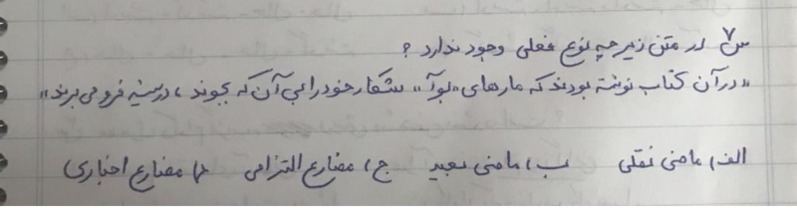 س۷ در متن زیر چه نوع فعلی وجود ندارد ؟
«در آن کتاب نوشته بودند که مارهای «بوآ» شکار خود را بی آن که بجوند ، درسته فرو می برند»
الف) ماضی نقلی ب) ماضی بعید ج) مضارع التزامی د) مضارع اخباری